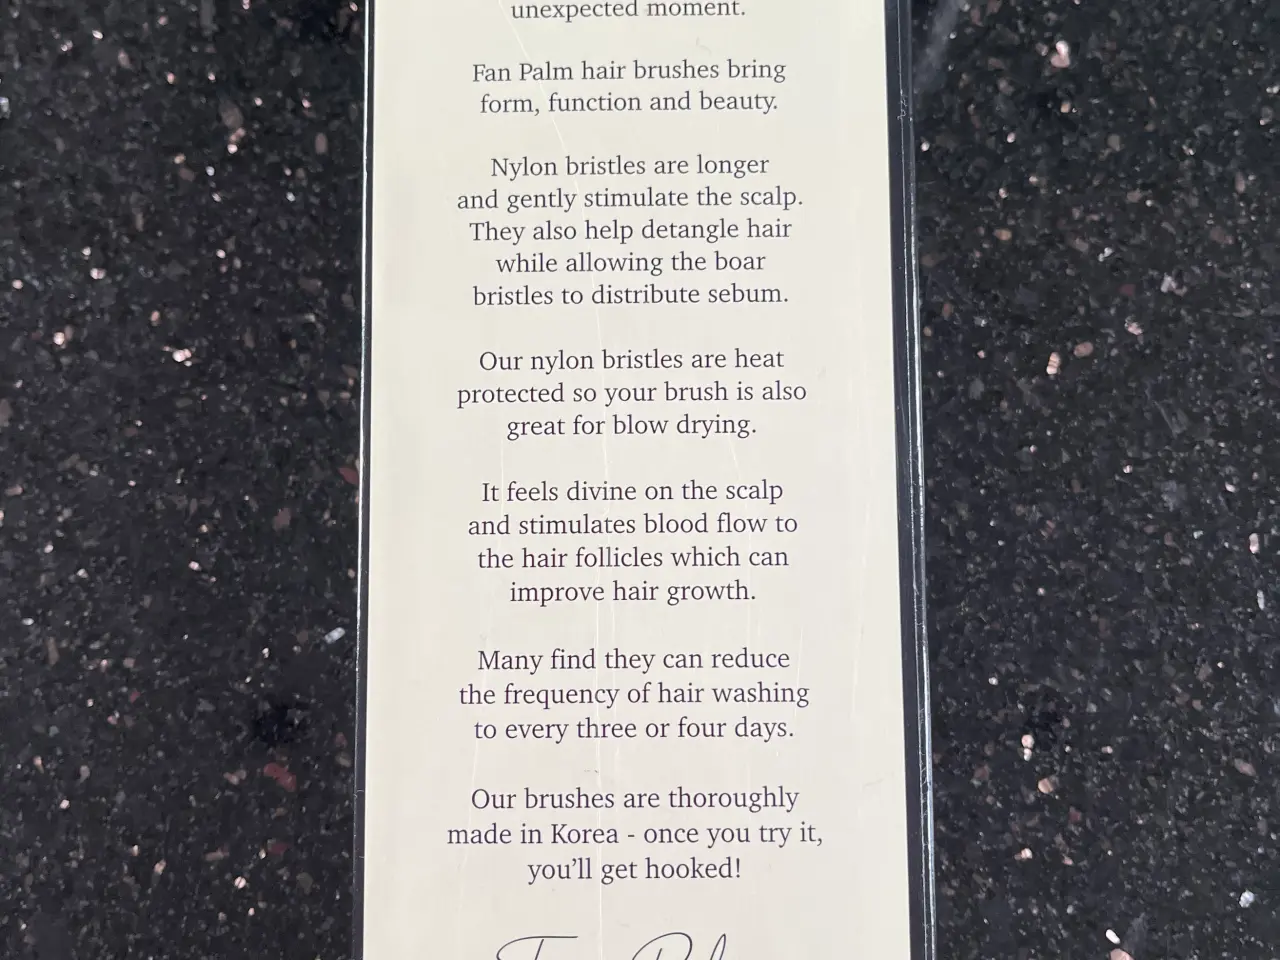 unexpected moment.
Fan Palm hair brushes bring
form, function and beauty.
Nylon bristles are longer
and gently stimulate the scalp.
They also help detangle hair
while allowing the boar
bristles to distribute sebum.
Our nylon bristles are heat
protected so your brush is also
great for blow drying.
It feels divine on the scalp
and stimulates blood flow to
the hair follicles which can
improve hair growth.
Many find they can reduce
the frequency of hair washing
to every three or four days.
Our brushes are thoroughly
made in Korea - once you try it,
you’ll get hooked!